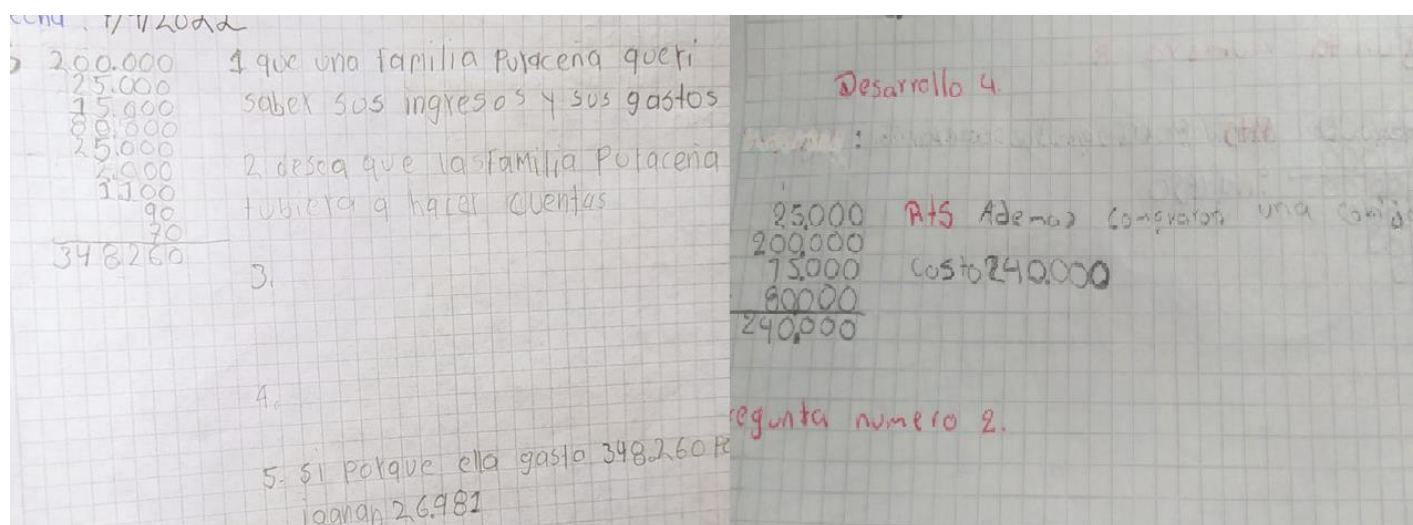 200.000
25.000
15.000
80.000
25.000
2.000
1100
90
70
348260
1 que una familia Puraceña queri
saber sus ingresos y sus gastos
2 desea que las familia Puraceña
tubiera q hacer cuentas
3.
4.
5. si porque ella gasto 348.260
ganan 26.981
Desarrollo 4.
25,000
200,000
15,000
80000
240,000
Rts Ademas compraron una comida
Costo 240.000
egunta numero 2.